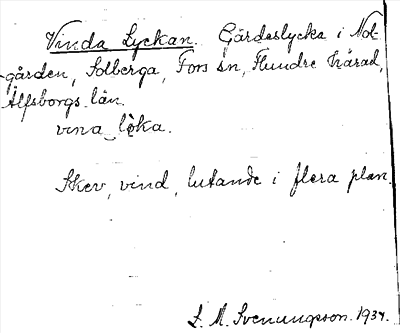 Vinda Lyckan. Gärdeslycka i Nol-
gården, Solberga, Fors sn, Flundre härad,
Älfsborgs län.
vina löka.
Skev, vind, lutande i flera plan.
L. M. Svenungsson. 1937.